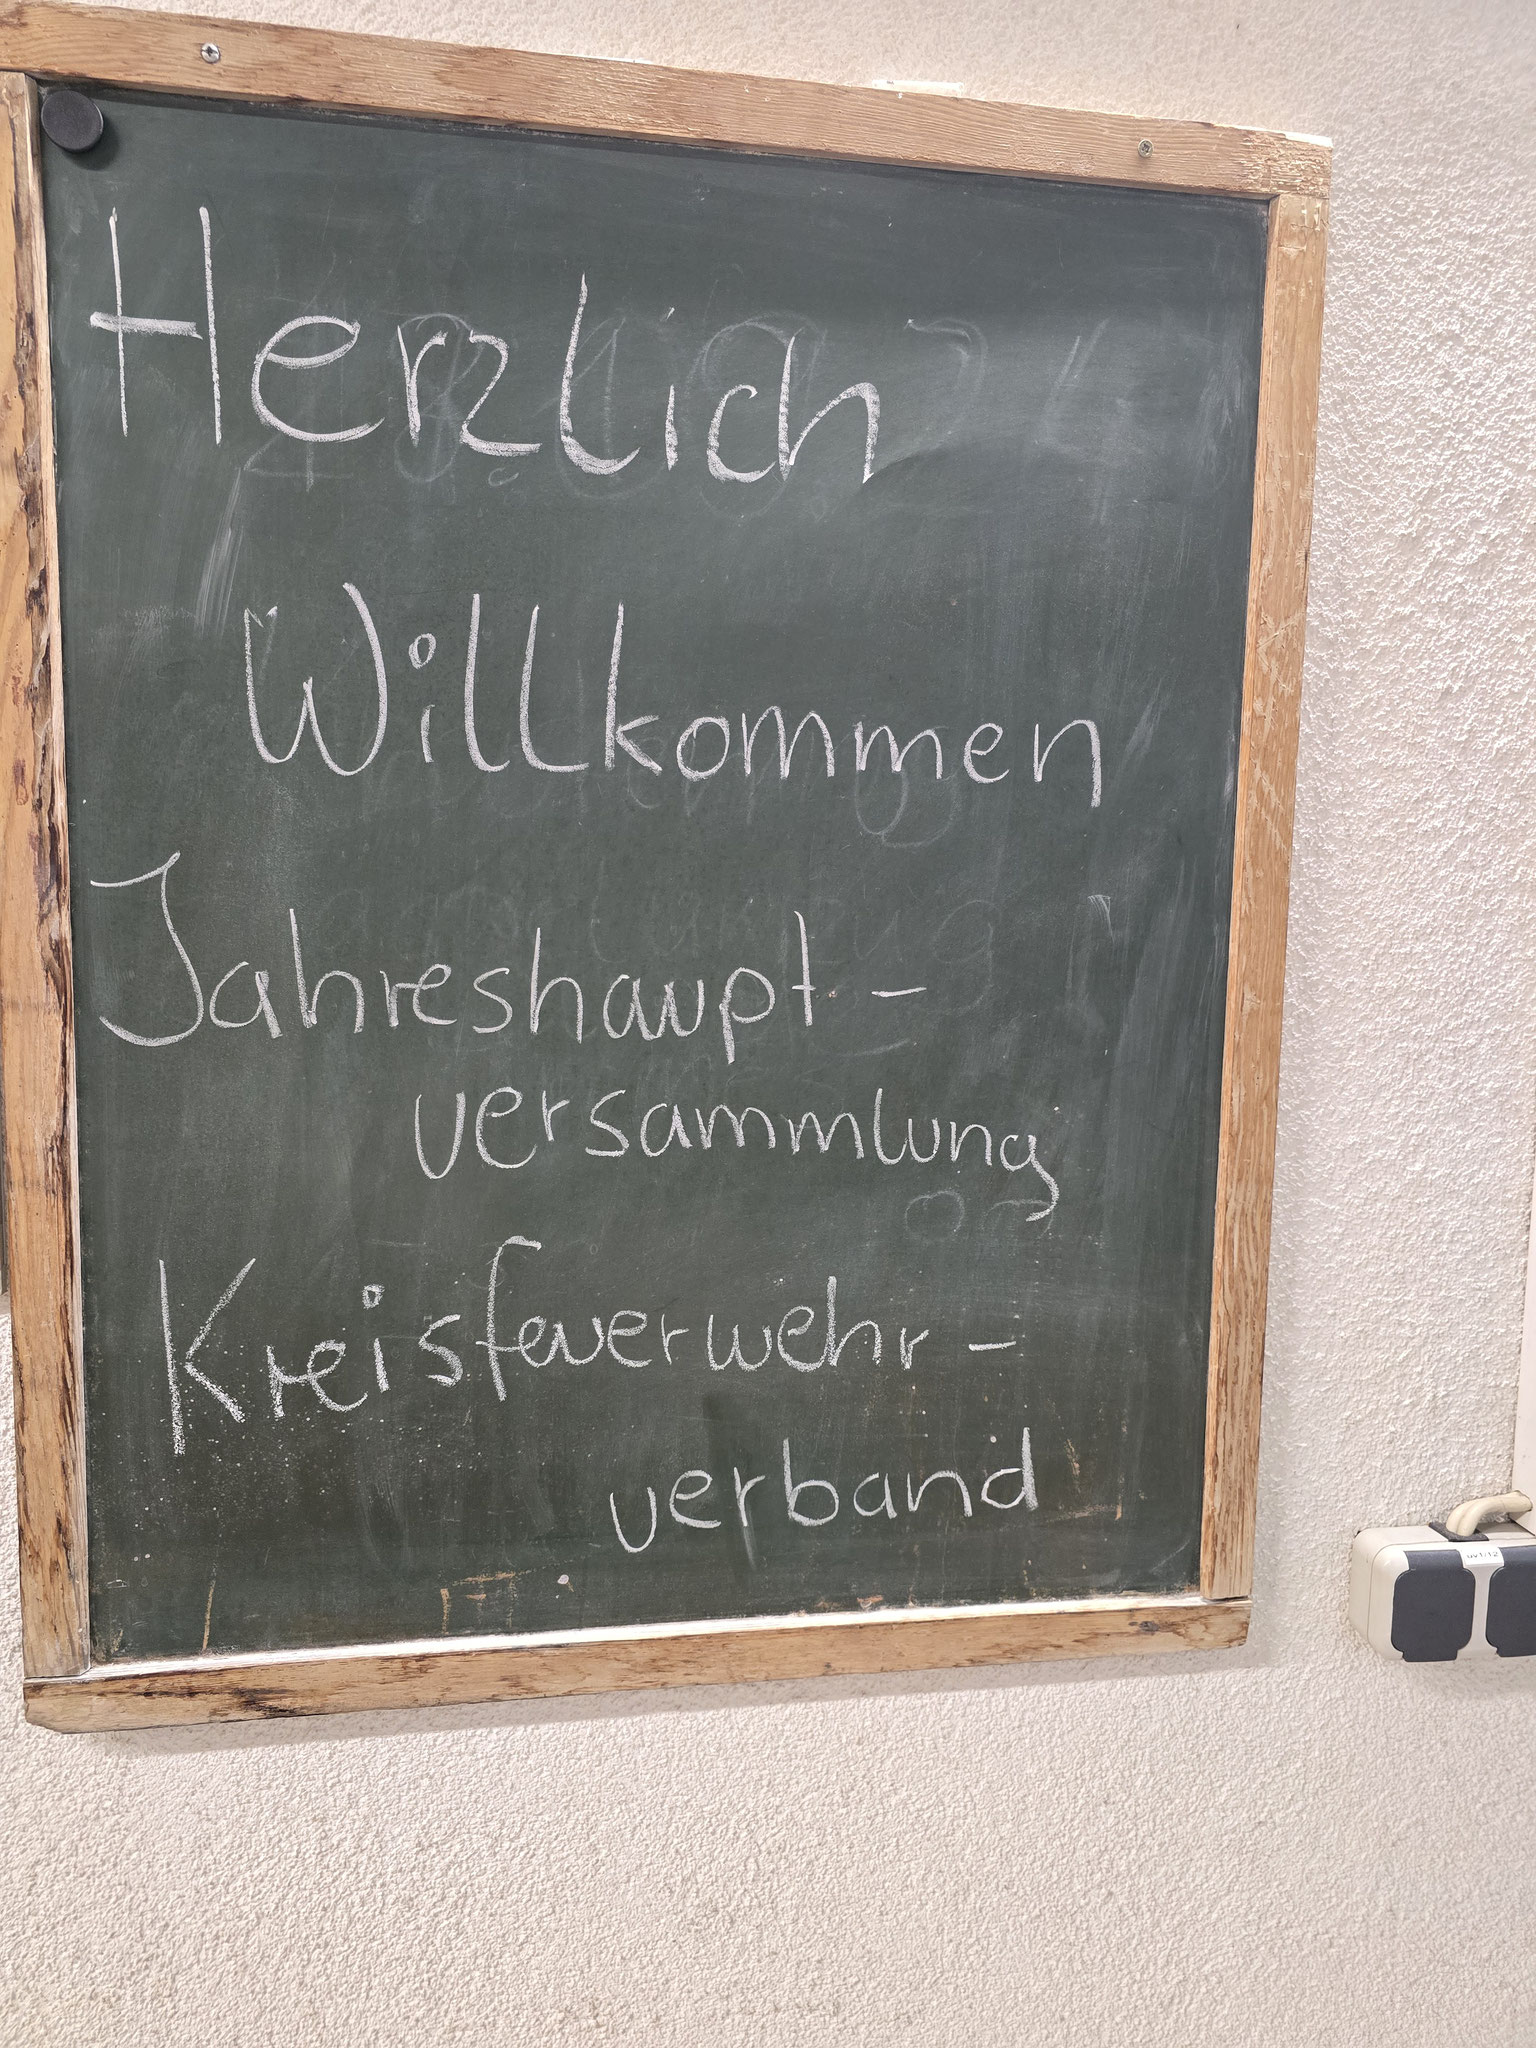 Herzlich
Willkommen
Jahreshaupt-
versammlung
Kreisfeuerwehr-
verband
uv1/12